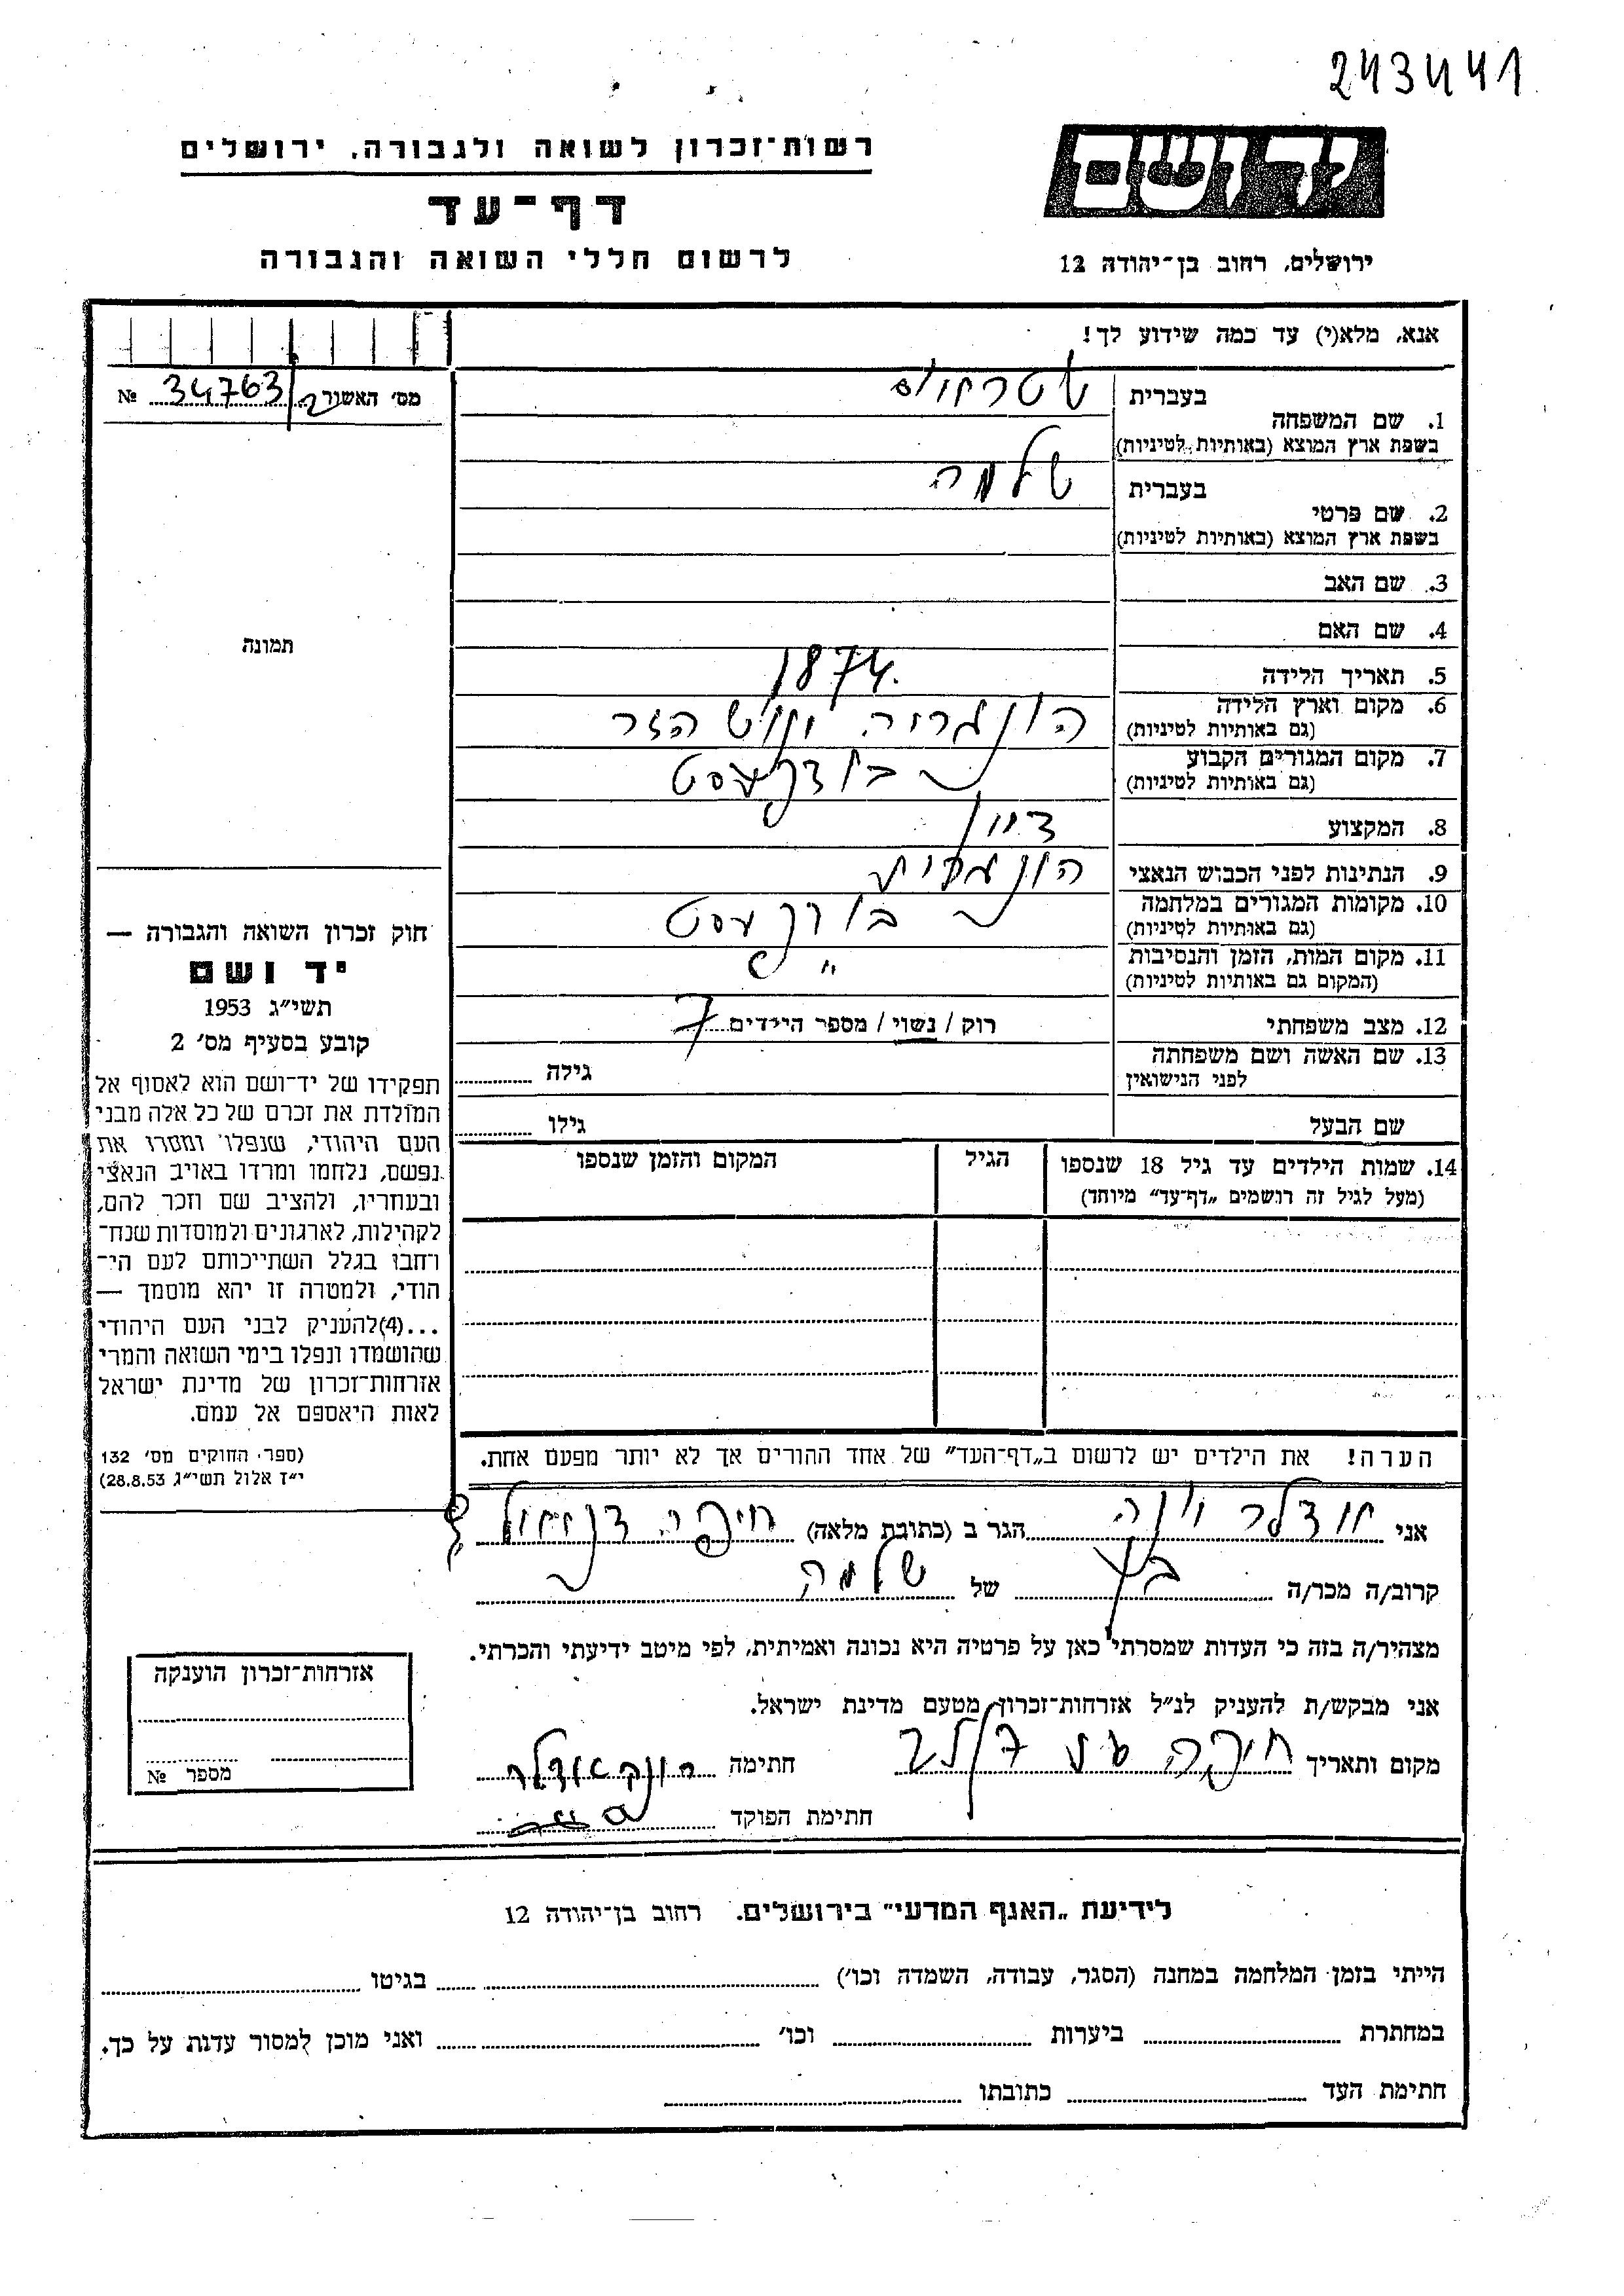 243441
רשות־זכרון לשואה ולגבורה, ירושלים
דף־עד
לרשום חללי השואה והגבורה
יד ושם
ירושלים, רחוב בן־יהודה 12
אנא, מלא(י) עד כמה שידוע לך!
מס׳ האשור 34763 №
1. שם המשפחה
בעברית
בשפת ארץ המוצא (באותיות לטיניות)
2. שם פרטי
בעברית שלמה
בשפת ארץ המוצא (באותיות לטיניות)
3. שם האב
4. שם האם
5. תאריך הלידה 1874.
6. מקום וארץ הלידה הונגריה
(גם באותיות לטיניות)
7. מקום המגורים הקבוע בודפעסט
(גם באותיות לטיניות)
8. המקצוע דיין
9. הנתינות לפני הכבוש הנאצי הונגרית
10. מקומות המגורים במלחמה בודפעסט
(גם באותיות לטיניות)
11. מקום המות, הזמן והנסיבות "
(המקום גם באותיות לטיניות)
12. מצב משפחתי רוק / נשוי / מספר הילדים 7
13. שם האשה ושם משפחתה
לפני הנישואין
גילה
שם הבעל גילו
14. שמות הילדים עד גיל 18 שנספו
(מעל לגיל זה רושמים „דף־עד״ מיוחד)
הגיל
המקום והזמן שנספו
הערה! את הילדים יש לרשום ב„דף־העד״ של אחד ההורים אך לא יותר מפעם אחת.
תמונה
חוק זכרון השואה והגבורה —
יד ושם
תשי״ג 1953
קובע בסעיף מס׳ 2
תפקידו של יד־ושם הוא לאסוף אל
המולדת את זכרם של כל אלה מבני
העם היהודי, שנפלו ומסרו את
נפשם, נלחמו ומרדו באויב הנאצי
ובעוזריו, ולהציב שם וזכר להם,
לקהילות, לארגונים ולמוסדות שנח־
רחבו בגלל השתייכותם לעם הי־
הודי, ולמטרה זו יהא מוסמך —
...(4) להעניק לבני העם היהודי
שהושמדו ונפלו בימי השואה והמרי
אזרחות־זכרון של מדינת ישראל
לאות היאספם אל עמם.
(ספר החוקים מס׳ 132
י״ז אלול תשי״ג 28.8.53)
אני הגר ב (כתובת מלאה) חיפה
קרוב/ה מכר/ה בן של שלמה
מצהיר/ה בזה כי העדות שמסרתי כאן על פרטיה היא נכונה ואמיתית, לפי מיטב ידיעתי והכרתי.
אני מבקש/ת להעניק לנ״ל אזרחות־זכרון מטעם מדינת ישראל.
מקום ותאריך חיפה חתימה
חתימת הפוקד
אזרחות־זכרון הוענקה
מספר №
לידיעת „האגף המדעי״ בירושלים. רחוב בן־יהודה 12
הייתי בזמן המלחמה במחנה (הסגר, עבודה, השמדה וכו׳) בגיטו
במחתרת ביערות וכו׳ ואני מוכן למסור עדות על כך.
חתימת העד כתובתו